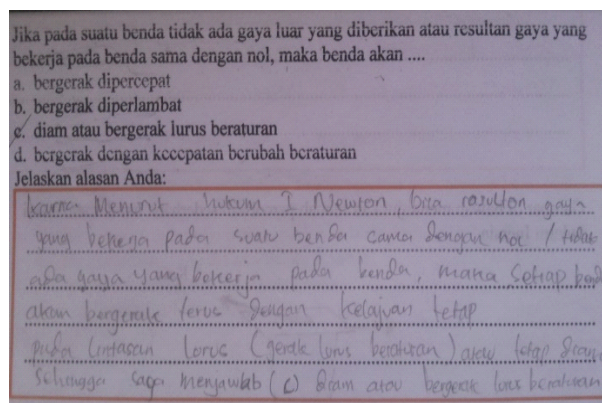 Jika pada suatu benda tidak ada gaya luar yang diberikan atau resultan gaya yang
bekerja pada benda sama dengan nol, maka benda akan ....
a. bergerak dipercepat
b. bergerak diperlambat
c. diam atau bergerak lurus beraturan
d. bergerak dengan kecepatan berubah beraturan
Jelaskan alasan Anda:
karna Menurut hukum I Newton, bila rasulton gaya
yang bekerja pada suatu benda sama dengan nol / tidak
ada gaya yang bekerja pada benda, maka setiap bend
akan bergerak terus dengan kelajuan tetap
pada lintasan lorus (gerak lurus beraturan) atau tetap diam
sehingga saya menjawab (c) diam atau bergerak lurus beraturan